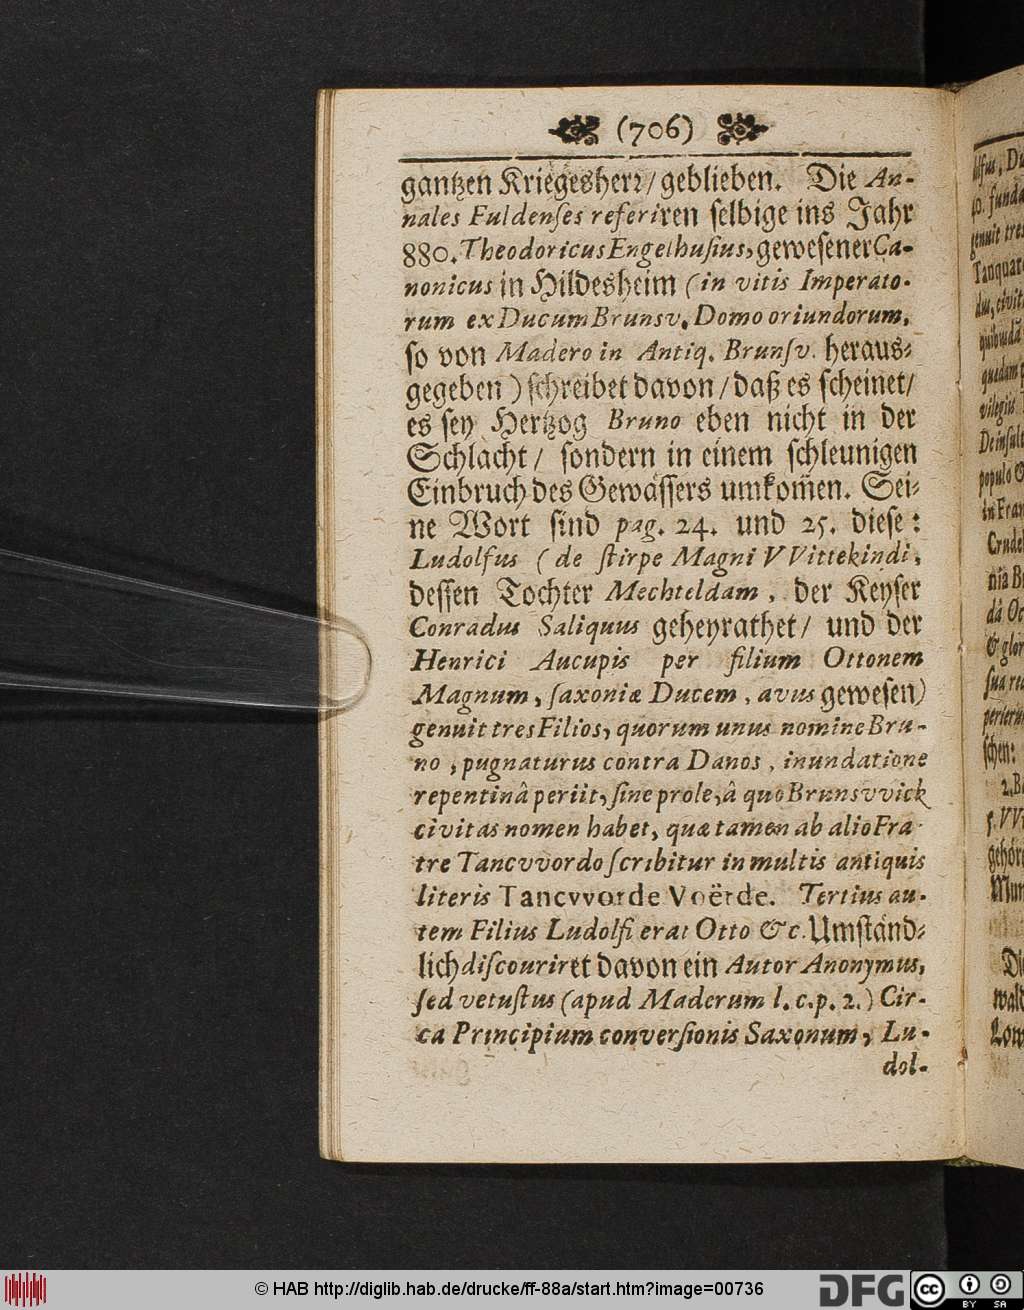 (706)
gantzen Kriegesherr/ geblieben. Die An-
nales Fuldenses referiren selbige ins Jahr
880. Theodoricus Engelhusius, gewesener Ca-
nonicus in Hildesheim (in vitis Imperato-
rum ex Ducum Brunsv. Domo oriundorum,
so von Madero in Antiq. Brunsv. heraus-
gegeben) schreibet davon/ daß es scheinet/
es sey Hertzog Bruno eben nicht in der
Schlacht/ sondern in einem schleunigen
Einbruch des Gewässers umkom̄en. Sei-
ne Wort sind pag. 24. und 25. diese:
Ludolfus (de stirpe Magni VVittekindi,
dessen Tochter Mechteldam, der Keyser
Conradus Saliquus geheyrathet/ und der
Henrici Aucupis per filium Ottonem
Magnum, saxoniæ Ducem, avus gewesen)
genuit tres Filios, quorum unus nomine Bru-
no, pugnaturus contra Danos, inundatione
repentinâ periit, sine prole, â quo Brunsvvick
civitas nomen habet, quæ tamen ab alio Fra-
tre Tancvvordo scribitur in multis antiquis
literis Tancvvorde Voërde. Tertius au-
tem Filius Ludolfi erat Otto &c. Umständ-
lich discouriret davon ein Autor Anonymus,
sed vetustus (apud Maderum l. c. p. 2.) Cir-
ca Principium conversionis Saxonum, Lu-
dol-
© HAB http://diglib.hab.de/drucke/ff-88a/start.htm?image=00736
DFG
cc
BY SA